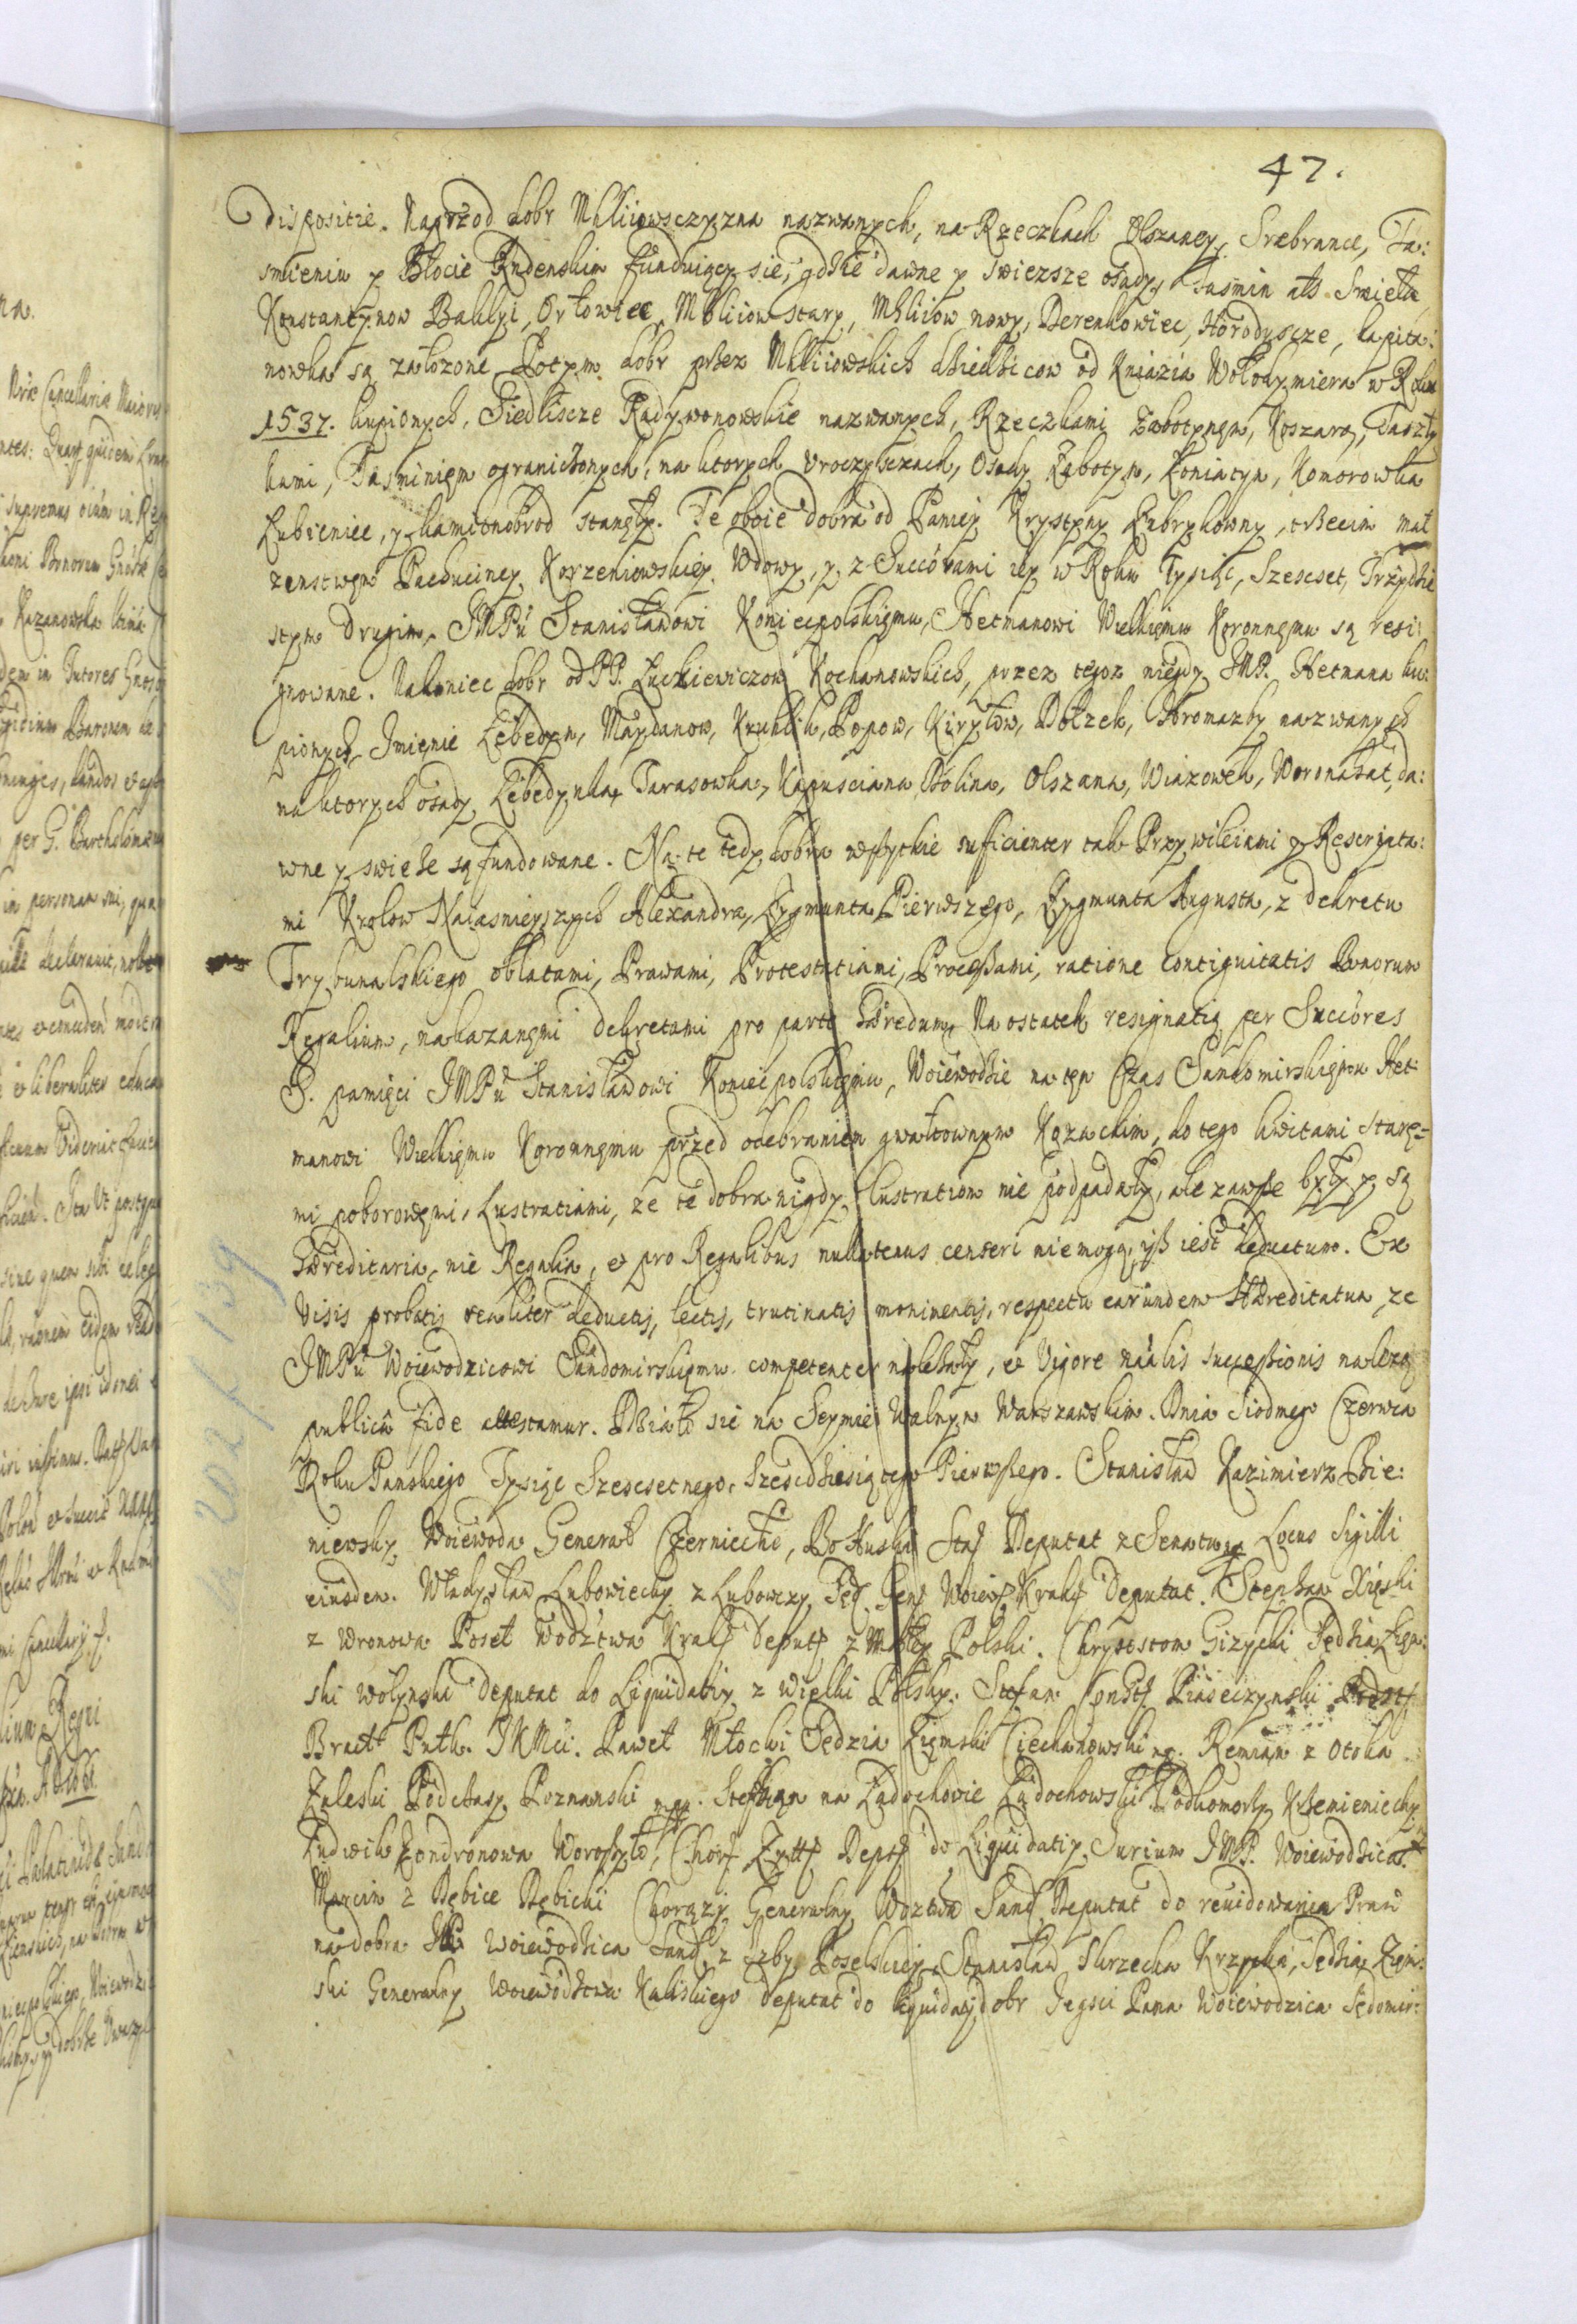 47.
dispositie. Naprzod dobr Mhliiowsczyzna nazwanych, na Rzeczkach Olszancy, Srebrance, Ta:
smieniu y Błocie Rudenskim funduiącysię, gdzie dawne y swiezsze osady, Tasmin als Smieła,
Konstantynow Baklyi, Orłowiec, Mhliiow stary, Mhliiow nowy, Derenkowiec, Horodyscze, Kapita:
nowka są załozone. Potym dobr przez Mhliiowskich dziedzicow od Kniazia Wołodymiera w Roku
1537. kupionych, Siedliscze Radywonowskie nazwanych, Rzeczkami Zabotynem, Koszarą, Taszly
kami, Tasminiem ograniczonych, na ktorych Uroczysczach, Osady Zabotyn, Koniatyn, Komorowka
Lubieniec, y Kamionobrod stanęły. Te oboie dobra od Paniey Krystyny Lubrykowny, trzecim mał
zenstwem Paeduciney Korzeniowskiey Wdowy, y z Succorami iey w Roku Tysiąc, Szescset, Trzydzie
stym drugim, JMPu Stanisławowi Koniecpolskiemu, Hetmanowi Wielkiemu Koronnemu są resi:
gnowane. Nakoniec dobr od PP. Łuckiewiczow Kochanowskich, przez tegoz niegdy JMP. Hetmana ku:
pionych, Imienie Lebedyn, Maydanow, Kruhlik, Popow, Kiryłow, Dołzek, Hromazby nazwanych
na ktorych osady Lebedynka, Tarasowka, Kapusciana Dolina, Olszana, Wiazowek, Woronahat, da:
wne y swieze są fundowane. Na te tedy dobra wszytkie suficienter tak Przywileiami y Rescripta:
mi Krolow Naiasnieyszych Alexandra, Zygmunta Pierwszego, Zygmunta Augusta, z dekretu
Trybunalskiego oblatami, Prawami, Protestatiami, Processami, ratione contiguitatis Bonorum
Regalium, nakazanemi dekretami pro parte Hæredum, Na ostatek resignatią per Succores
S. pamięci JMPu Stanisławowi Koniecpolskiemu, Woiewodzie na ten Czas Sandomirskiemu Het:
manowi Wielkiemu Koronnemu przed odebraniem gwałtownym Kozackim, do tego kwitami stare=
mi poborowemi, Lustratiami, ze te dobra nigdy lustratiom nie podpadały, ale zawsze były y są
Hæreditaria, nie Regalia, et pro Regalibus nullatenus censeri niemogą, ysz iest deductum. Ex
Visis probatis realiter deductis, lectis, trutinatis monimentis, respectu earundem Hæreditatum, ze
JMPu Woiewodzicowi Sandomirskiemu competenter nalezały, et Vigore nãalis successionis nalezą
publicâ fide attestamur. Działo się na Seymie Walnym Warszawskim. Dnia Siodmego Czerwca
Roku Panskiego Tysiąc Szescsetnego, Szescdziesiątego Pierwszego. Stanisław Kazimierz Bie:
niewsky, Woiewoda Generał Czerniechi, Bohuski Sta Deputat z Senatu Locus Sigilli
eiusdem. Władysław Lubowiecky z Lubowczy, Sęd Gen Woiew Krak Deputat. Stephan Xięski
z Wronowa Poseł Wodztwa Krak Deput z Małey Polski. Chrysostom Gizycki Sędzia Ziem:
ski Wołynski Deputat do Liquidatiy z Wielki Polsky. Stefan Const Piaseczynski Podst
Bracł Putk. JKMći. Paweł Młocki Sędzia Ziemski Ciechanowski mp. Remian z Otoka
Zaleski Podczaszy Poznanski mpp. Stephan na Ladochowie Ladochowski Podkomorzy Krzemieniecky
Ludwik Kondronowa Woroszyło, Chor Zytt Dept do Liquidatiy Jurium JMP. Woiewodzica.
Marcin z Dębice Dębicki Chorązy Generalny Woztwa Sand Deputat do reuidowania Praw
na dobra JMP Woiewodzica Sand z Izby Poselskiey. Stanisław Skrzecka Krzycki, Sędzia, Ziem:
ski Generalny Woiewodztwa Kaliskiego Deputat do liquidatiy dobr Jegsci Pana Woiewodzica Sędomir: